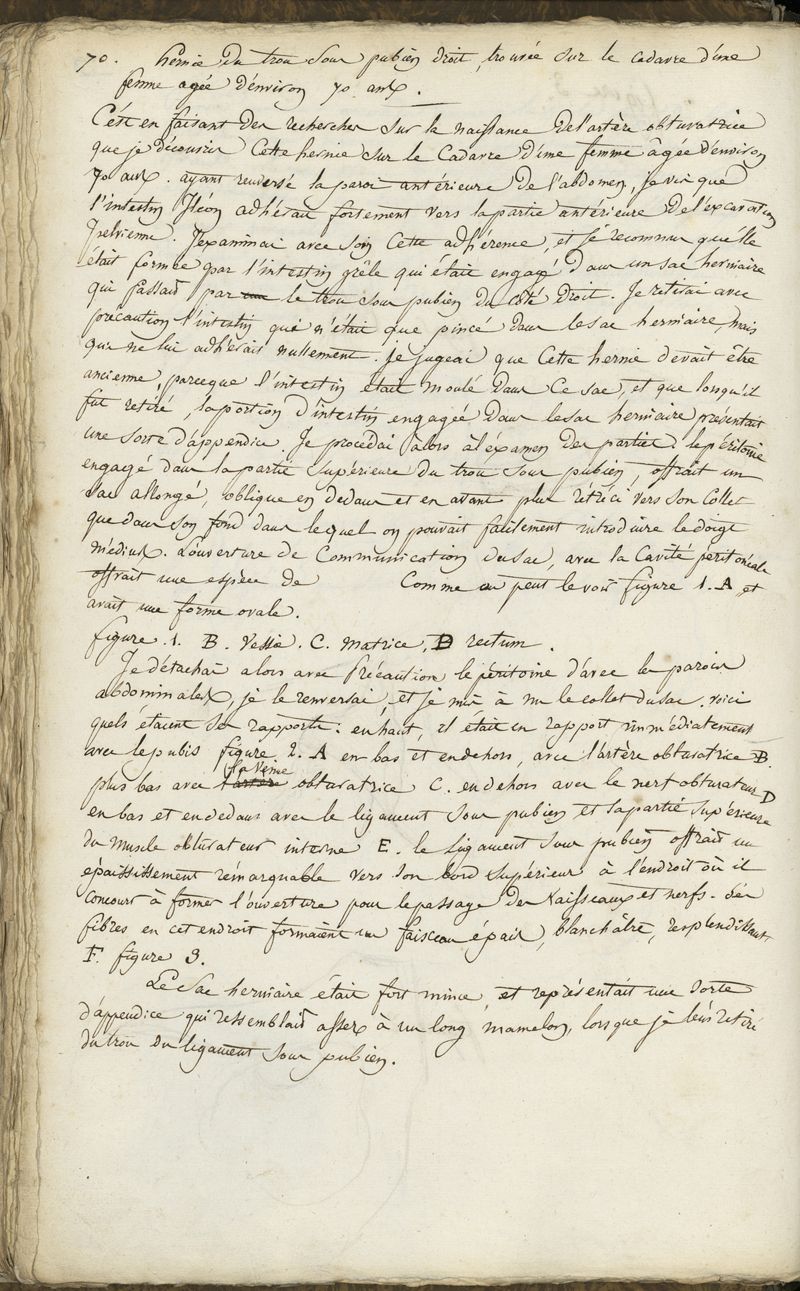 70. hernie du trou sous pubien droit, trouvée sur le cadavre d'une
femme agée d'environ 70 ans.
C'est en faisant des recherches sur la naissance de l'artère obturatrice
que je découvris cette hernie sur le cadavre d'une femme âgée d'environ
70 ans. ayant renversé la paroi antérieure de l'abdomen, je vis que
l'intestin Iléon adhérait fortement vers la partie antérieure de l'excavation
pelvienne. J'examinai avec soin cette adhérence, et je reconnus qu'elle
était formée par l'intestin grêle qui était engagé dans un sac herniaire
qui passait par le trou sous pubien du côté droit. Je retirai avec
précaution l'intestin qui n'était que pincé dans le sac herniaire, mais
qui ne lui adhérait nullement. je jugeai que cette hernie devait être
ancienne, parceque l'intestin était moulé dans ce sac, et que lorsqu'il
fut retiré, la portion d'intestin engagée dans le sac herniaire présentait
une sorte d'appendice. Je procédai alors à l'éxamen des parties. le péritoine
engagé dans la partie supérieure du trou sous pubien, offrait un
sac allongé, oblique en dedans et en avant plus rétréci vers son collet
que dans son fond dans lequel on pouvait facilement introduire le doigt
médius. L'ouverture de communication du sac, avec la cavité péritonéale
offrait une espèce de comme on peut le voir figure 1. A, et
avait une forme ovale.
figure. 1. B. vessie. C. matrice, D rectum.
Je détachai alors avec précaution le péritoine d'avec les parois
abdominales, je le renversai, et je mis à nu le collet du sac. voici
quels étaient ses rapports: en haut, il était en rapport immédiatement
avec le pubis figure 2. A en bas et en dehors, avec l'artère obturatrice B.
plus bas avec la veine obturatrice C. en dehors avec le nerf obturateur D
en bas et en dedans avec le ligament sous pubien et la partie supérieure
du muscle obturateur interne E. le ligament sous pubien offrait un
épaississement rémarquable vers son bord supérieur à l'endroit où il
concourt à former l'ouverture pour le passage des vaisseaux et nerfs. ses
fibres en cet endroit formaient un faisceau épais, blanchâtre, resplendissant
F. figure 3.
Le sac herniaire était fort mince, et représentait une sorte
d'appendice qui ressemblait assez à un long mamelon, lorsque je l'eus retiré
du trou du ligament sous pubien.